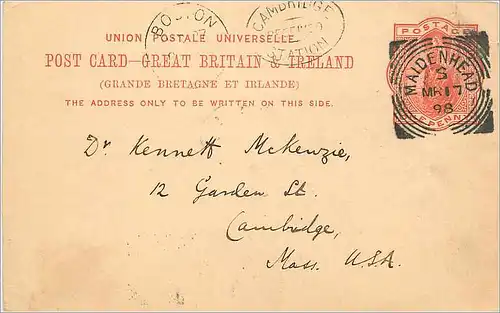 BOSTON
CAMBRIDGE
STATION
UNION POSTALE UNIVERSELLE
POST CARD–GREAT BRITAIN & IRELAND
(GRANDE BRETAGNE ET IRLANDE)
THE ADDRESS ONLY TO BE WRITTEN ON THIS SIDE.
POSTAGE
MAIDENHEAD
S
MR 17
98
Dr Kennett McKenzie,
12 Garden St.
Cambridge,
Mass. U.S.A.